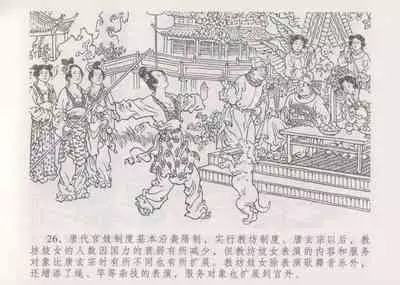 26、唐代官妓制度基本沿袭隋制，实行教坊制度。唐玄宗以后，教
坊妓女的人数因国力的衰弱有所减少，但教坊妓女表演的内容和服务
对象比唐玄宗时有所不同也有所扩展。教坊妓女除表演歌舞音乐外，
还增添了绳、竿等杂技的表演，服务对象也扩展到宫外。